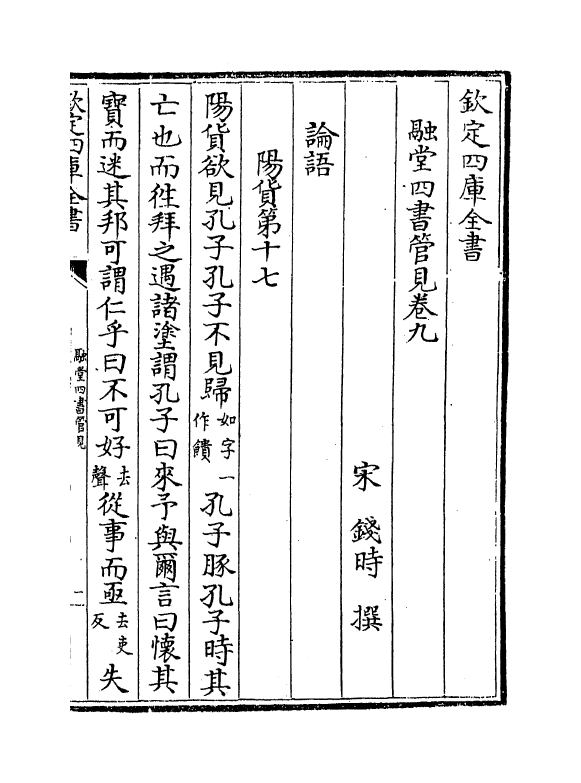 欽定四庫全書
融堂四書管見卷九
宋 錢時 撰
論語
陽貨第十七
陽貨欲見孔子孔子不見歸如字一作饋孔子豚孔子時其
亡也而往拜之遇諸塗謂孔子曰來予與爾言曰懷其
寶而迷其邦可謂仁乎曰不可好去聲從事而亟去吏反失
欽定四庫全書
融堂四書管見